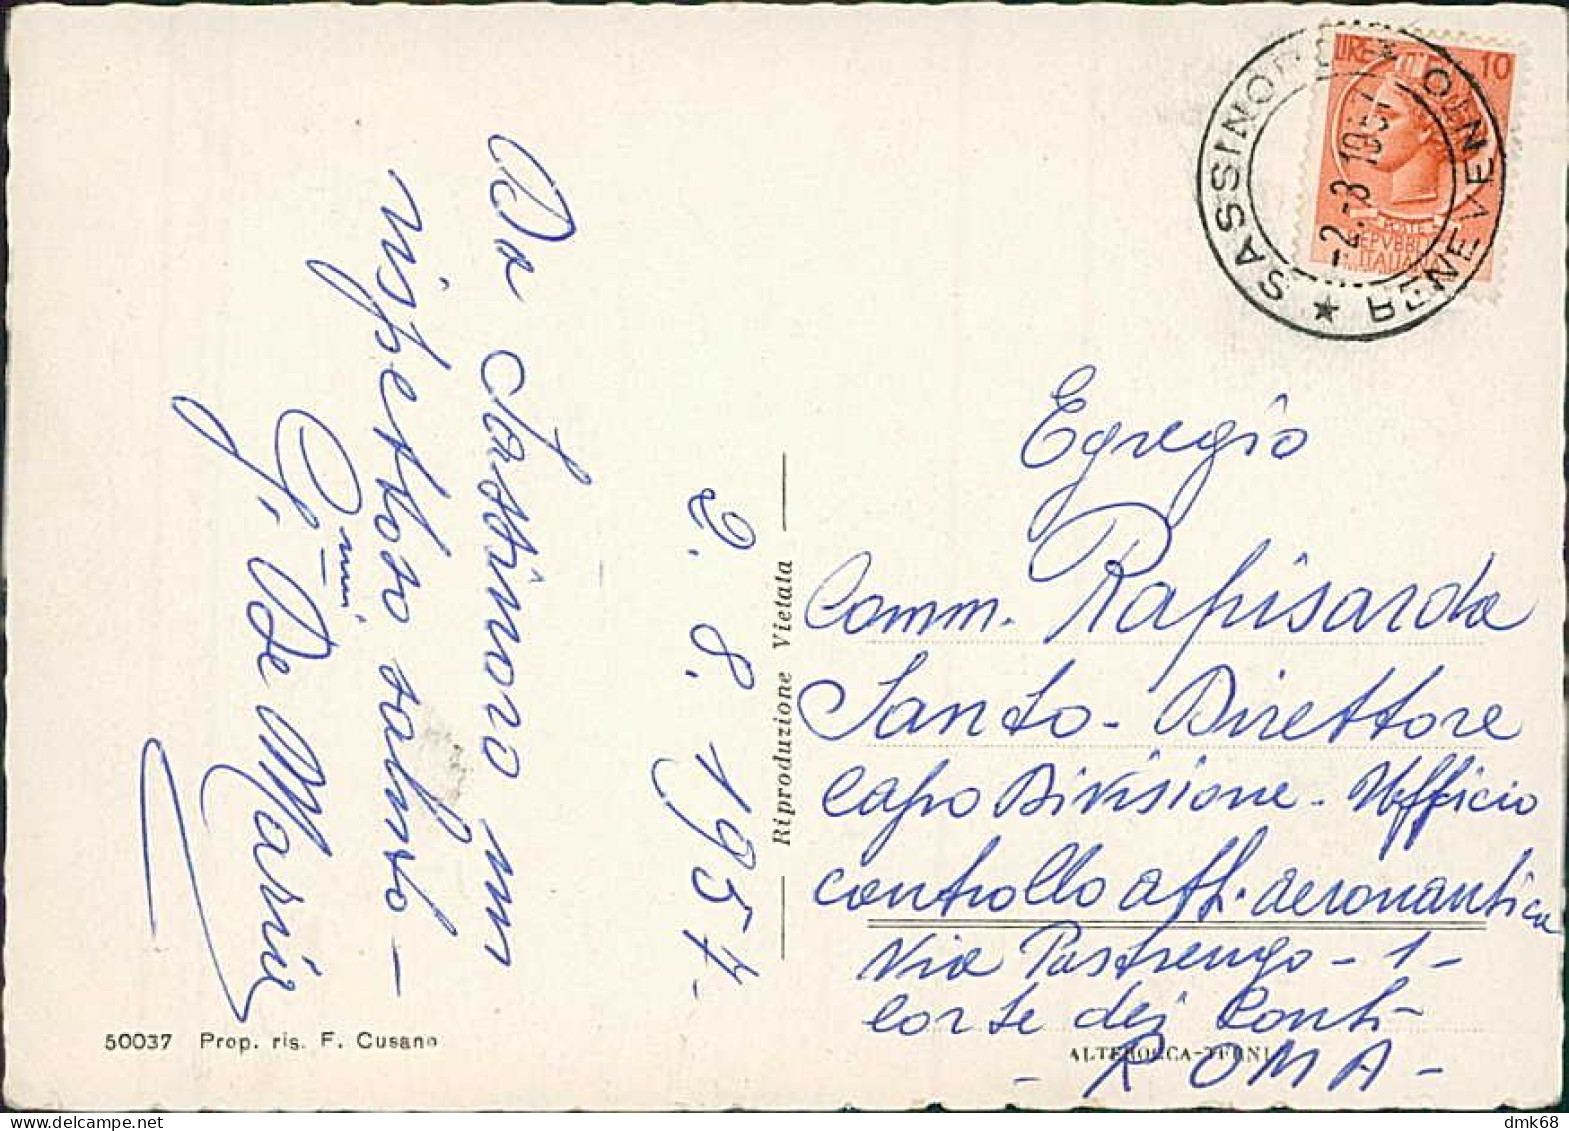 Da Sassinoro un
rispettoso saluto -
Gimmi
G. De Maria
2. 8. 1954.
Riproduzione Vietata
50037 Prop. ris. F. Cusano
SASSINORO ★ BENEVENTO
-2.-8 1954
LIRE 10
POSTE
REPVBBLICA
ITALIANA
Egregio
Comm. Rapisarda
Santo - Direttore
Capo Divisione - Ufficio
controllo att. aeronautica
Via Pastrengo - 1 -
Corte dei Conti -
- ROMA -
ALTEROCCA-TERNI
dmk68